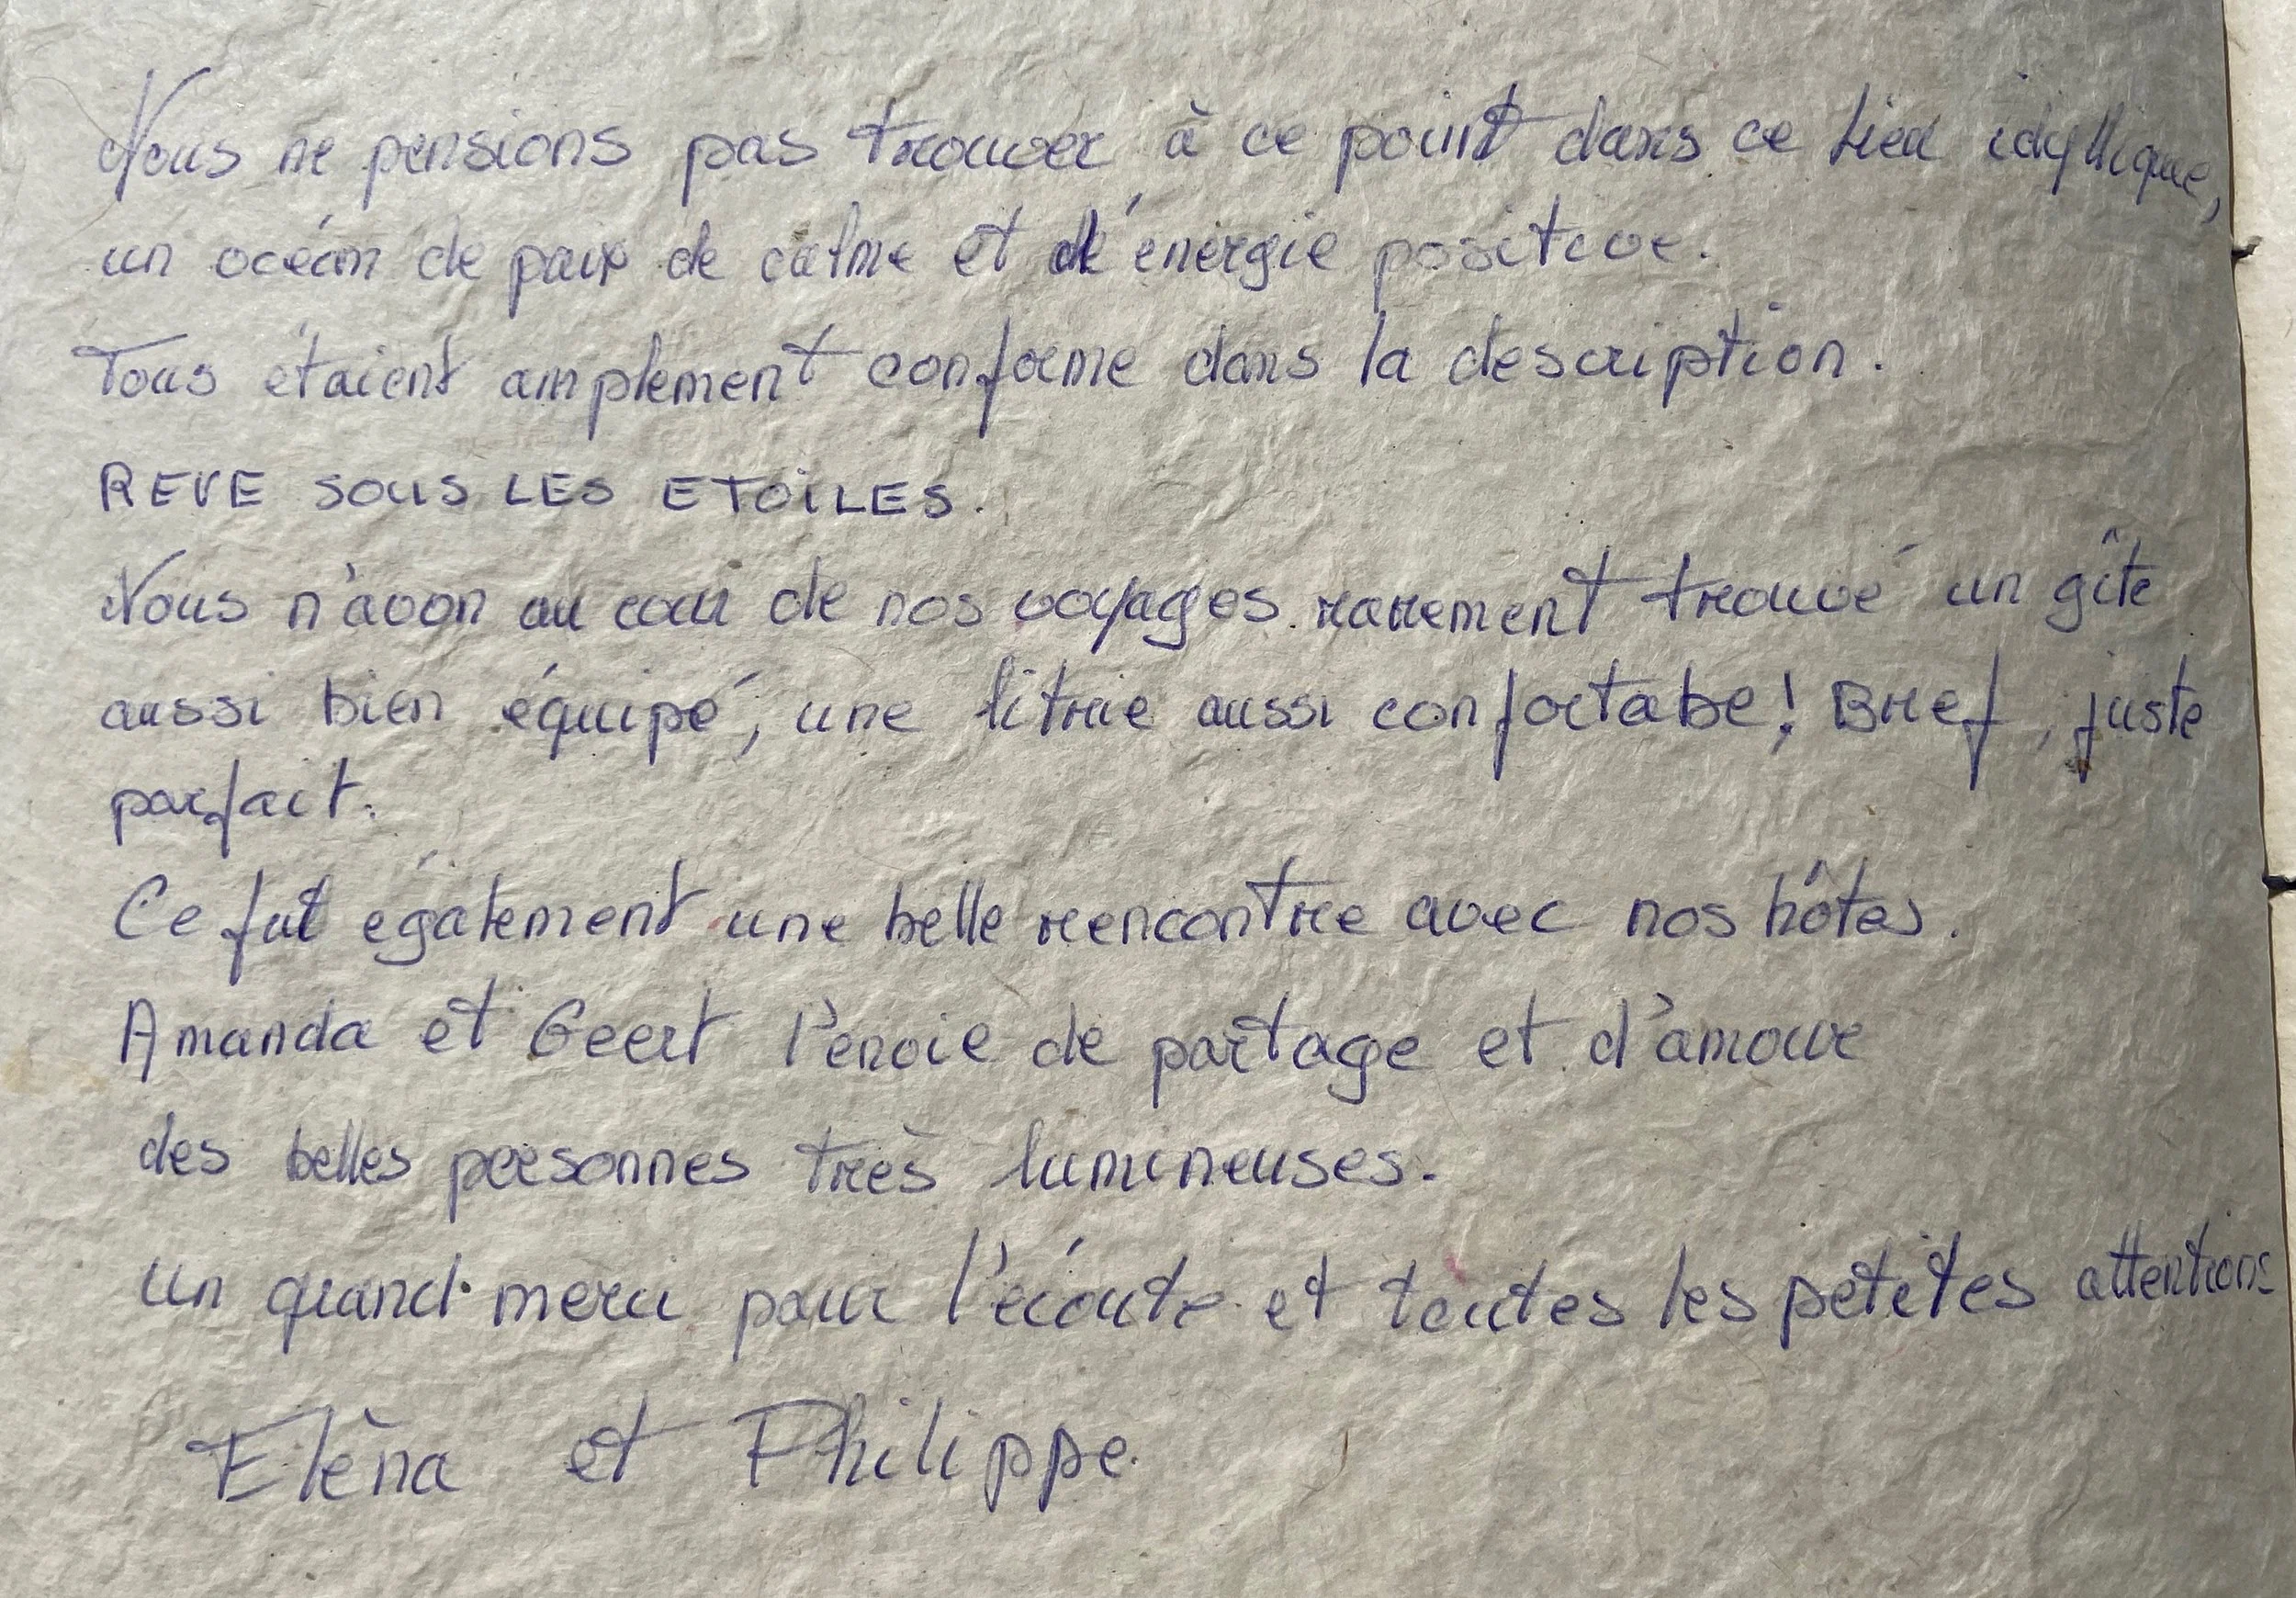 Nous ne pensions pas trouver à ce point dans ce lieu idyllique,
un océan de paix de calme et d'énergie positive.
Tous étaient amplement conforme dans la description.
REVE SOUS LES ETOILES.
Nous n'avon au cour de nos voyages rarement trouvé un gîte
aussi bien équipé, une litrie aussi confortabe! Bref, juste
parfait.
Ce fut également une belle rencontre avec nos hôtes.
Amanda et Geert l'envie de partage et d'amour
des belles personnes très lumineuses.
Un grand merci pour l'écoute et toutes les petites attentions
Elèna et Philippe.